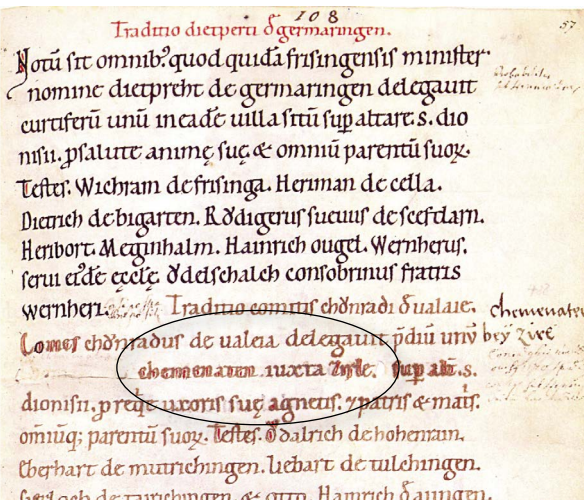 108
57
Traditio dietperti đ germaringen.
Notū sit omnib; quod quidā frisingensis minister
nomine dietpreht de germaringen delegauit
curtiferū unū in eadē uilla sitū sup altare. s. dio
nisii. p salute anime sue & omniū parentū suoꝝ.
Testes. Wichram de frisinga. Heriman de cella.
Dietrich de bigarten. Růdigerus sueuus de sceftlarn.
Heribort. Meginhalm. Hainrich ougel. Wernherus.
serui eiđe ęcclę. Ůdelschalch consobrinus fratris
wernheri. Traditio comitis chůnradi đ ualaie.
chemenaten
Comes chůnradus de ualeia delegauit p̄diū unū
bey zirl
chemenaten iuxta Zirle. sup alt̄. s.
dionisii. p reqͥe uxoris suę agnetis. ⁊ patris & mat͛s.
omiuq; parentū suoꝝ. Testes. Ůdalrich de hohenrain.
Eberhart de mutrichingen. Liebart de tulchingen.